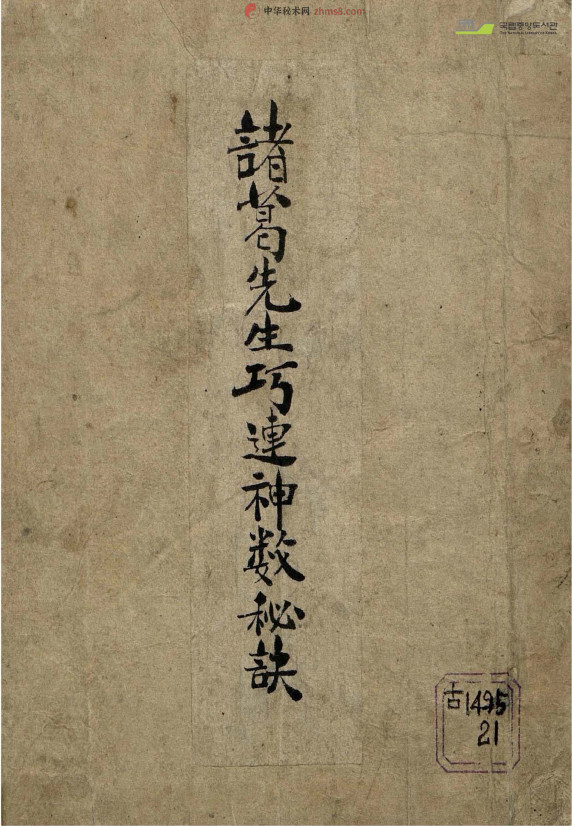 中华秘术网 zhms8.com
국립중앙도서관
THE NATIONAL LIBRARY OF KOREA
諸葛先生巧連神数秘訣
古1495
21